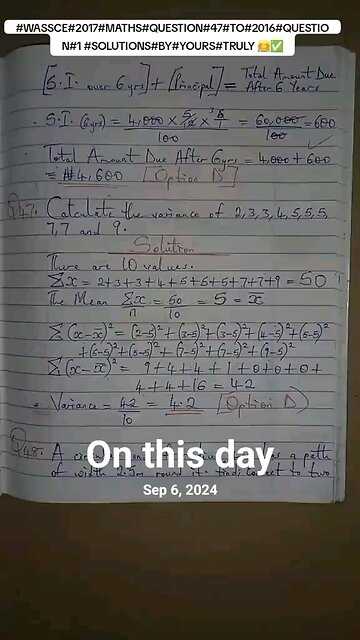 #WASSCE#2017#MATHS#QUESTION#47#TO#2016#QUESTIO
N#1 #SOLUTIONS#BY#YOURS#TRULY 🤗✅
[S.I. over 6yrs] + [Principal] = Total Amount Due After 6 Years
S.I. (6yrs) = 4,000 × × = 60,000 = 600
100 100
Total Amount Due After 6yrs = 4,000 + 600
= ₦4,600 [Option D]
Q47. Calculate the variance of 2,3,3,4,5,5,5,
7,7 and 9.
Solution
There are 10 values.
Σx = 2+3+3+4+5+5+5+7+7+9 = 50
The Mean Σx/n = 50/10 = 5 = x̄
Σ(x-x̄)² = (2-5)²+(3-5)²+(3-5)²+(4-5)²+(5-5)²
+(5-5)²+(5-5)²+(7-5)²+(7-5)²+(9-5)²
Σ(x-x̄)² = 9+4+4+1+0+0+0+
4+4+16 = 42
Variance = 42/10 = 4.2 [Option D]
Q48. A a path
of width round it. find, correct to two
On this day
Sep 6, 2024